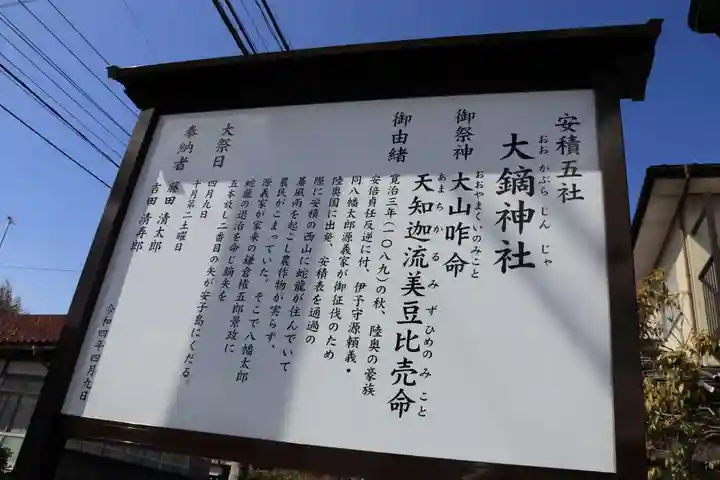 安積五社
大鏑神社
おおかぶらじんじゃ
御祭神
大山咋命
おおやまくいのみこと
天知迦流美豆比売命
あまちかるみずひめのみこと
御由緒
寛治三年(一〇八九)の秋、陸奥の豪族
安倍貞任反逆に付、伊予守源頼義・
同八幡太郎源義家が御征伐のため
陸奥国に出発、安積表を通過の
際に安積の西山に蛇龍が住んでいて
暴風雨を起こし農作物が実らず、
農民がこまっていた。そこで八幡太郎
源義家が家来の鎌倉権五郎景政に
蛇龍の退治を命じ鏑矢を
五本放し二番目の矢が安子島にくだる。
大祭日
四月九日
十月第二土曜日
奉納者
藤田清太郎
吉田清寿郎
令和四年四月九日